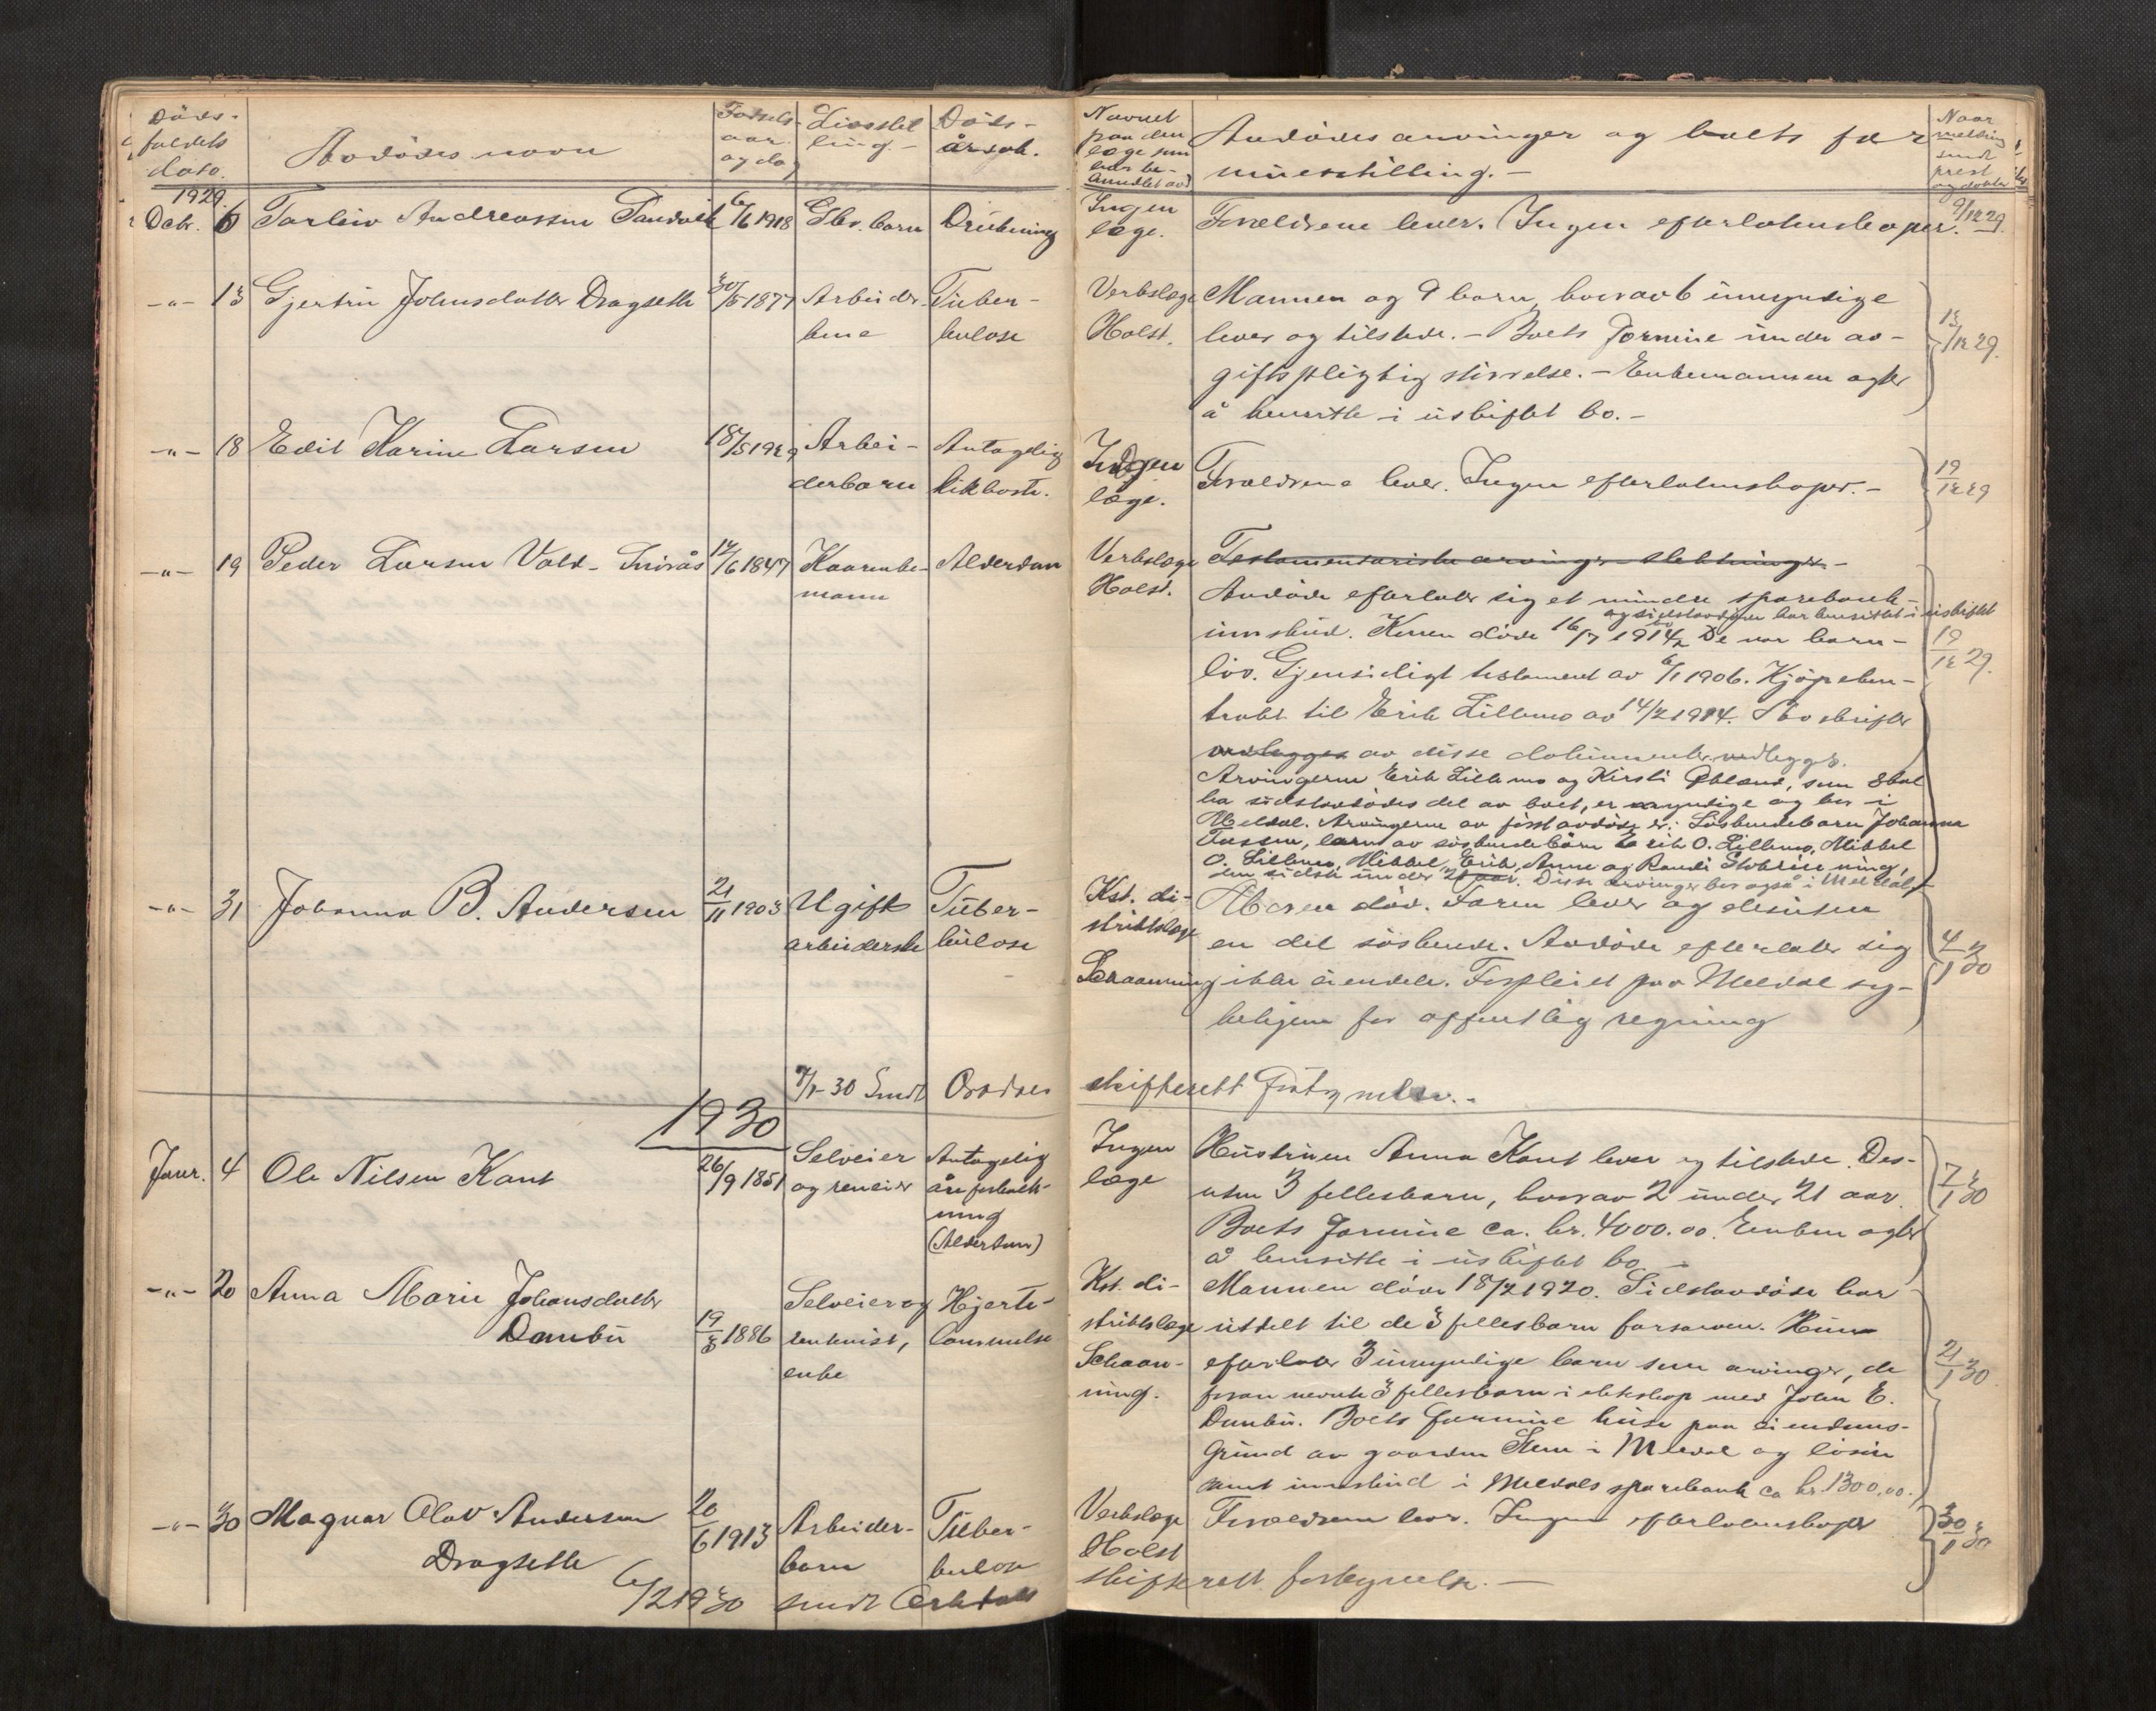 Döds-
faldets
dato.
Avdödes navn
Fødsels-
aar
og dag
Livsstil-
ling.-
Döds-
årsak.
Navnet
paa den
læge som
har be-
handlet avd
Avdödes arvinger og boets for
muesstilling.-
Naar
melding
sendt
prest
og dokter
1929.
Decbr. 6 Torleiv Andreassen Sandvik 6/6 1918 Gbr. barn Drukning
Ingen
læge.
Forældrene lever. Ingen efterlatenskaper. 9/12 29.
-"- 13 Gjertru Johnsdatter Dragseth 30/5 1877 Arbeider-
kone
Tuber-
kulose
Verkslæge
Holst.
Mannen og 9 barn, hvorav 6 umyndige
lever og tilstede.- Boets formue under av-
giftspligtig størrelse.- Enkemannen agter
å hensitte i uskiftet bo.-
13/12 29.
-"- 18 Edit Karine Larsen 18/5 1929 Arbei-
derbarn
Antagelig
kikhoste.
Ingen
læge.
Forældrene lever. Ingen efterlatenskaper.-
19/12 29
-"- 19 Peder Larsen Vold- Snoås 12/6 1847 Kaarenke-
mann
Alderdom
Verkslæge
Holst.
Testamentariske arvinger slektninger.-
Avdöde efterlater sig et mindre sparebank-
og sidstavdöde har hensittet i uskiftet
bo
innskud. Konen døde 16/7 1914. De var barn-
löv. Gjensidigt testament av 6/1 1906. Kjøpekon-
trakt til Erik Lillemo av 14/2 1914. Avskrifter
vedlegges av disse dokumenter vedlegges.
Arvingerne Erik Lillemo og Kirsti Øhland, som skal
ha sidstavdödes del av boet, er myndige og bor i
Meldal. Arvingerne av förstavdöde er: Söskendebarn Johanna
Tossen, barn av söskendebörn Erik O. Lillemo, Mikkel
O. Lillemo, Mikkel, Erik, Anne og Randi
den sidste under 21 aar. Disse arvinger bor også i Meldal.
19/12 29.
-"- 31 Johanna B. Andersen 21/11 1903 Ugift
arbeiderske
Tuber-
kulose
Kst. di-
striktslæge
Schaanning
Moren död. Faren lever og desuten
en del söskende. Avdöde efterlater sig
ikke eiendele. Forpleiet paa Meldal sy-
kehjem for offentlig regning
4/1 30
7/1-30 Sendt Orkdal skifterett fortegnelse.-
1930
Janr. 4 Ole Nilsen Kant 26/9 1851 Selveier
og reneier
Antagelig
åreforkalk-
ning
(Alderdom)
Ingen
læge
Hustruen Anna Kant lever og tilstede. Des-
uten 3 fellesbarn, hvorav 2 under 21 aar.
Boets formue ca. kr. 4000.00. Enken agter
å hensitte i uskiftet bo.-
7/1 30
-"- 20 Anna Marie Johansdatter
Dambu
19/3 1886
Selveier og
enke
Hjerte-
lammelse
Kst. di-
striktslæge
Schaan-
ning.
Mannen döde 18/2 1920. Sidstavdöde har
utdelt til de 3 fellesbarn farsarven. Hun
efterlater 3 umyndige barn som arvinger, de
foran nevnte 3 fellesbarn i ekteskap med John E.
Dambu. Boets formue huse paa eiendoms-
grund av gaarden Stem i Meldal og lösöre
samt innskud i Meldals sparebank ca kr. 1300.00.
21/1 30
-"- 30 Magnar Olav Andersen
Dragseth
20/6 1913 Arbeider-
barn
Tuber-
kulose
Verkslæge
Holst
Forældrene lever. Ingen efterlatenskaper
30/1 30
6/2 1930 sendt Orkdal skifterett fortegnelse.-